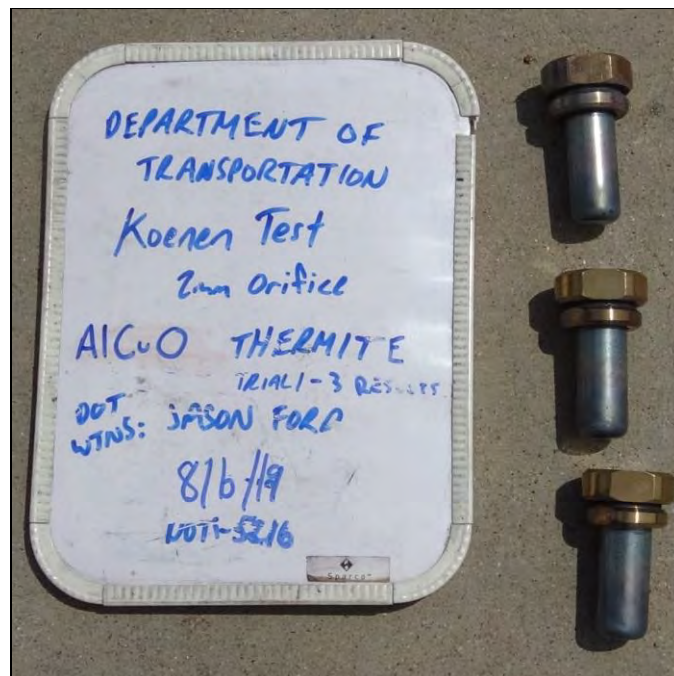 DEPARTMENT OF
TRANSPORTATION
Koenen Test
2mm Orifice
AlCuO THERMITE
TRIAL 1-3 RESULTS
DOT
WTNS: JASON FORD
8/6/19
Sparco